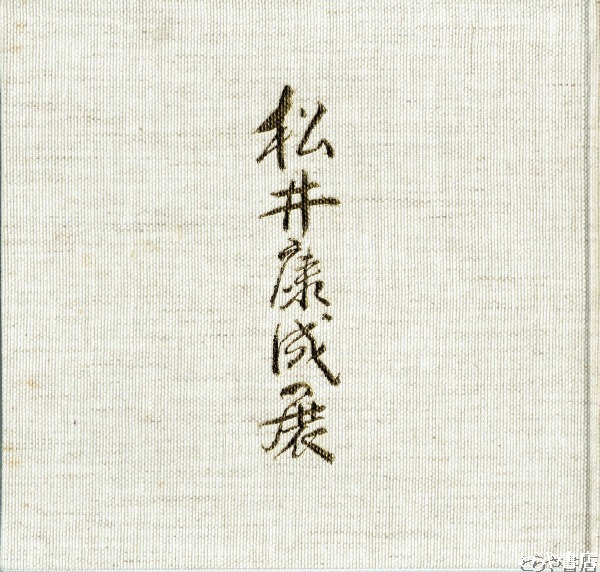 松井康成展
とらや書店